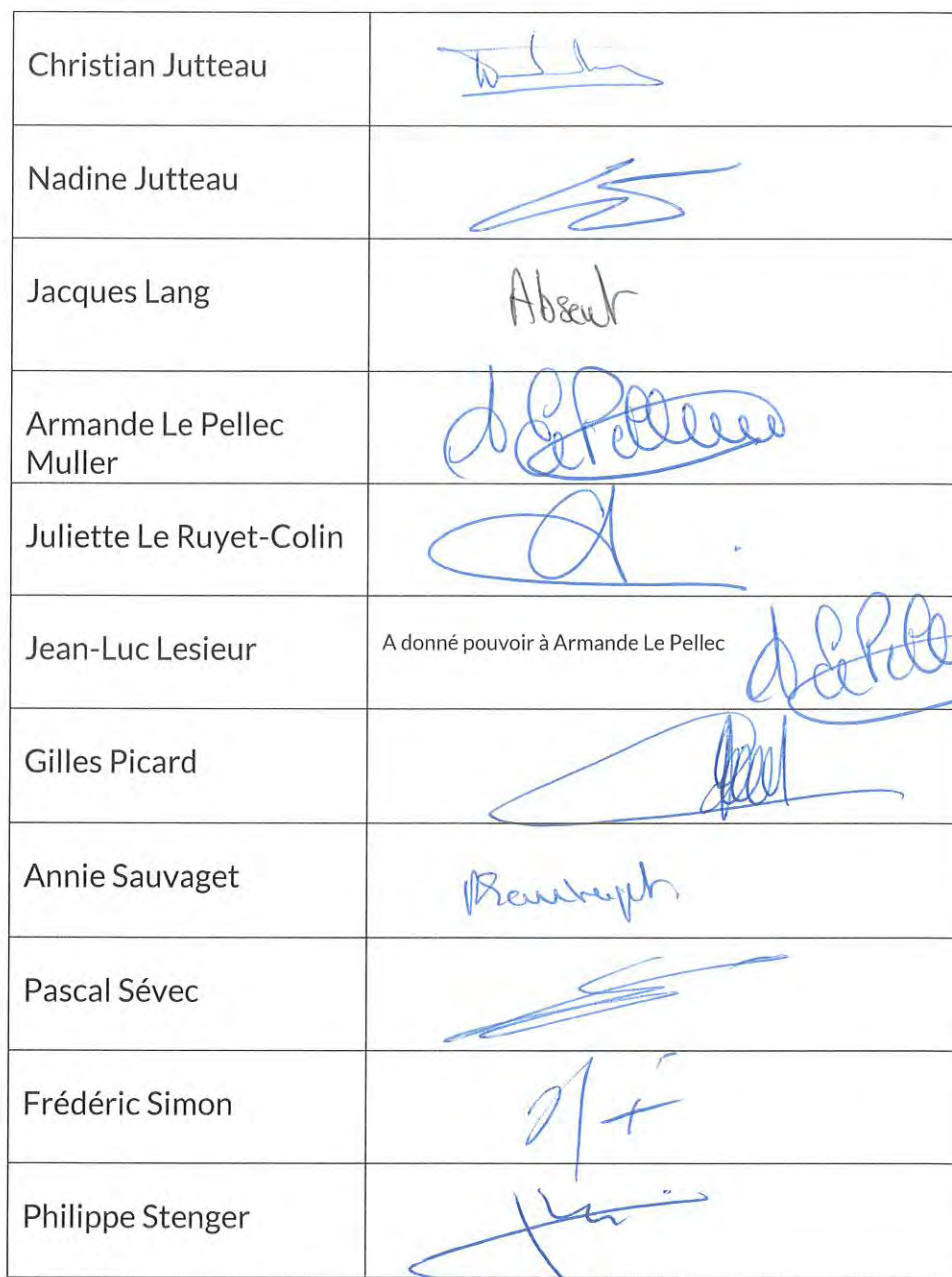 Christian Jutteau
Nadine Jutteau
Jacques Lang
Absent
Armande Le Pellec
Muller
Juliette Le Ruyet-Colin
Jean-Luc Lesieur
A donné pouvoir à Armande Le Pellec
Gilles Picard
Annie Sauvaget
Pascal Sévec
Frédéric Simon
Philippe Stenger